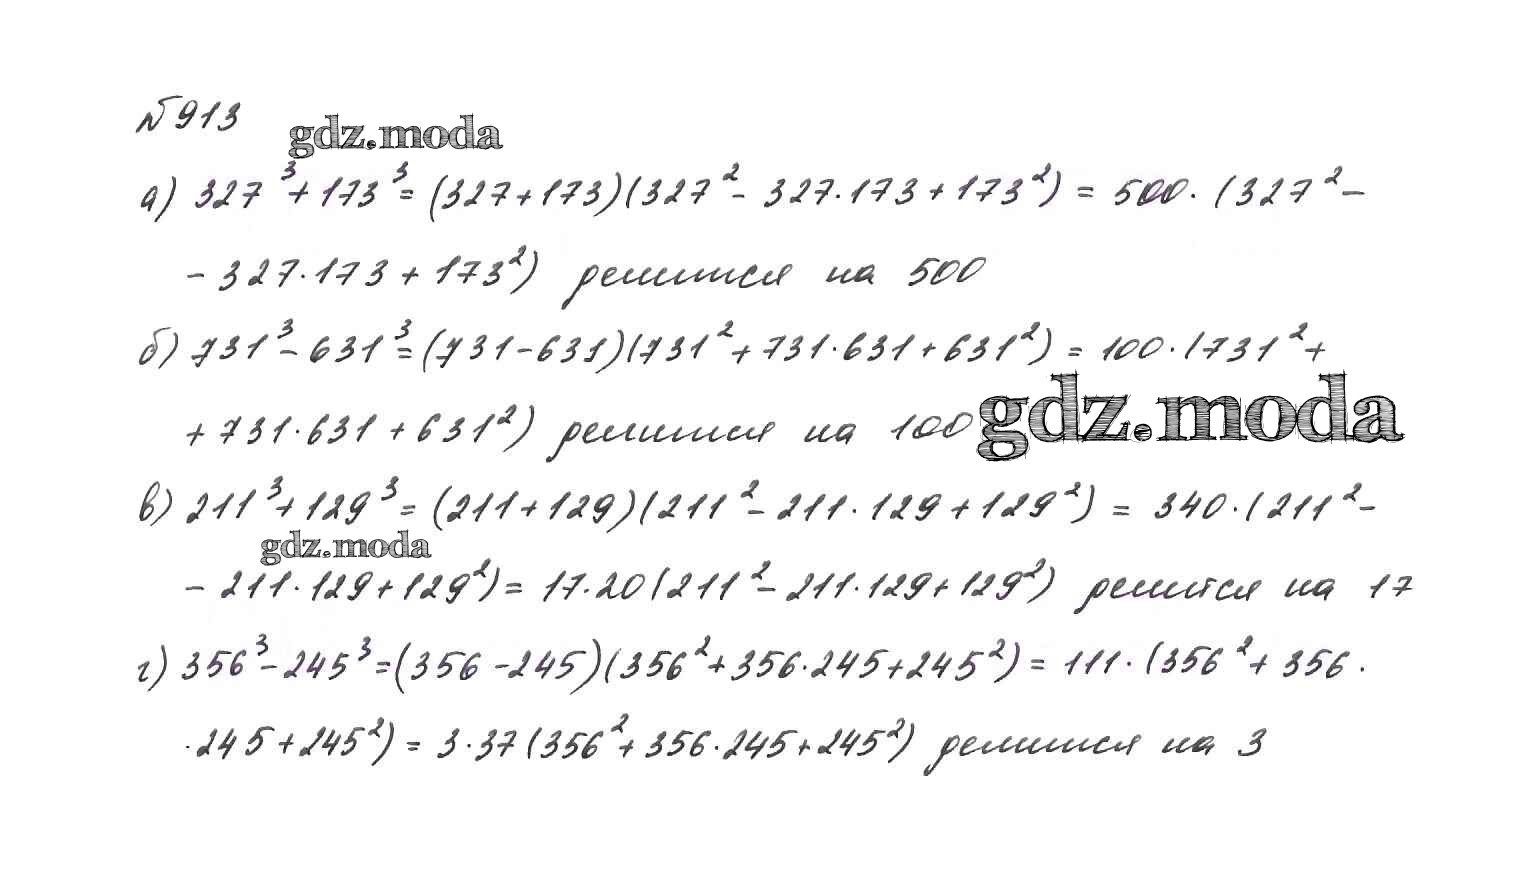 №913
gdz.moda
а) 327³ + 173³ = (327+173)(327² - 327·173 + 173²) = 500·(327² -
- 327·173 + 173²) делится на 500
б) 731³ - 631³ = (731-631)(731² + 731·631 + 631²) = 100·(731² +
+ 731·631 + 631²) делится на 100
gdz.moda
в) 211³ + 129³ = (211+129)(211² - 211·129 + 129²) = 340·(211² -
gdz.moda
- 211·129 + 129²) = 17·20(211² - 211·129 + 129²) делится на 17
г) 356³ - 245³ = (356-245)(356² + 356·245 + 245²) = 111·(356² + 356·
·245 + 245²) = 3·37(356² + 356·245 + 245²) делится на 3